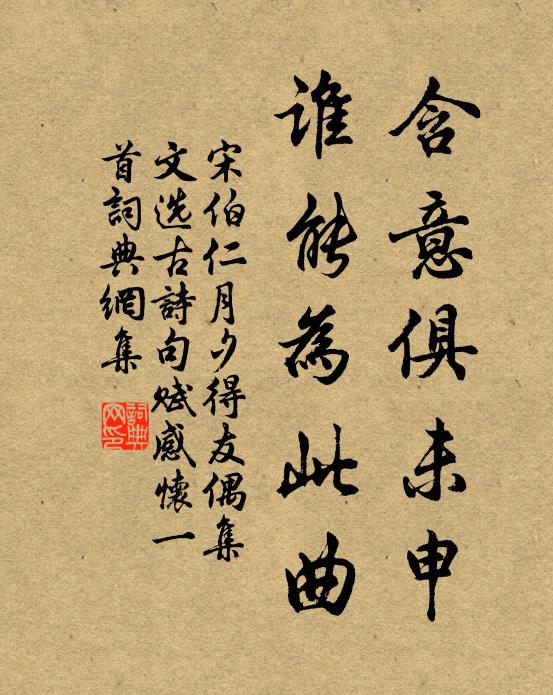 含意俱未申
谁能為此曲
宋伯仁月夕得友偶集
文选古詩句赋感懷一
首詞典網集
詞典网印